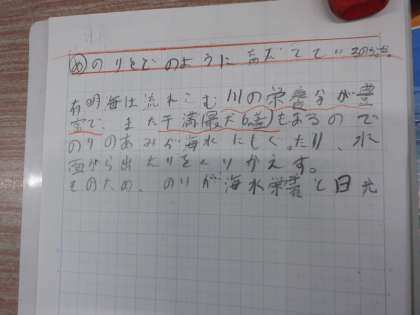 ㋱のりをどのように育てているのだろう。
有明海は流れこむ川の栄養分が豊
富で、また干満(最大6m)もあるので
のりのあみが海水にもぐったり、水
面から出たりをくりかえす。
そのため、のりが海水栄養と日光